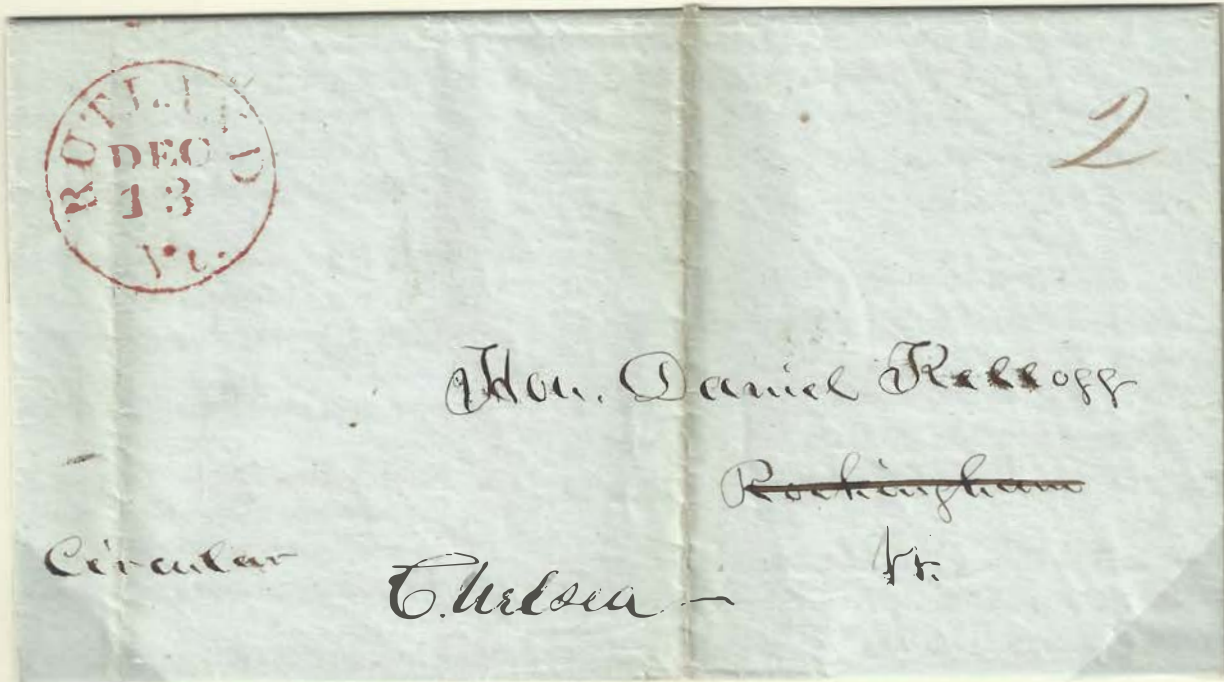 RUTLAND
DEC
13
Vt.
2
Hon. Daniel Kellogg
Rockingham
Vt.
Circular
Chelsea